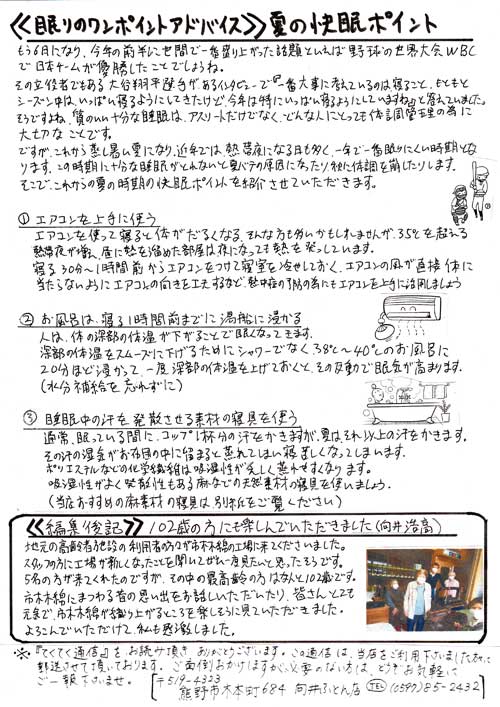 ≪眠りのワンポイントアドバイス≫夏の快眠ポイント
もう6月になり、今年の前半に世間で一番盛り上がった話題といえば野球の世界大会WBC
で日本チームが優勝したことでしょうね。
その立役者でもある大谷翔平選手があるインタビューで『一番大事に考えているのは寝ること。もともと
シーズン中は、いっぱい寝るようにしてきたけど、今年は特にいっぱい寝るようにしていますね』と答えていました。
そうですよね、質のいい十分な睡眠は、アスリートだけでなく、どんな人にとっても体調管理の為に
大切なことです。
ですが、これから蒸し暑い夏になり、近年では熱帯夜になる日も多く、一年で一番眠りにくい時期とな
ります。この時期に十分な睡眠がとれないと夏バテの原因になったり秋に体調を崩したりします。
そこで、これからの夏の時期の快眠ポイントを紹介させていただきます。
① エアコンを上手に使う
エアコンを使って寝ると体がだるくなる。そんな方も多いかもしれませんが、35℃を超える
熱帯夜が増え、昼に熱を溜めた部屋は夜になっても熱を発しています。
寝る30分〜1時間前からエアコンをつけて寝室を冷やしておく、エアコンの風が直接体に
当たらないようにエアコンの向きを工夫するなど、熱中症の予防の為にもエアコンを上手に活用しましょう
② お風呂は、寝る1時間前までに湯船に浸かる
人は、体の深部の体温が下がることで眠くなってきます。
深部の体温をスムーズに下げるためにシャワーでなく、38℃〜40℃のお風呂に
20分ほど浸かって、一度、深部の体温を上げておくと、その反動で眠気が高まります。
(水分補給を忘れずに)
③ 睡眠中の汗を発散させる素材の寝具を使う
通常、眠っている間に、コップ1杯分の汗をかきますが、夏は、それ以上の汗をかきます。
その汗の湿気がお布団の中に留まると蒸れてしまい寝苦しくなってしまいます。
ポリエステルなどの化学繊維は吸湿性が乏しく蒸れやすくなります。
吸湿性がよく発散性もある麻などの天然素材の寝具を使いましょう。
(当店おすすめの麻素材の寝具は別紙をご覧ください)
≪編集後記≫ 102歳の方にも楽しんでいただきました(向井浩高)
地元の高齢者施設の利用者の方々が市木木綿の工場に来てくださいました。
スタッフの方に工場が新しくなったことを聞いてぜひ一度見たいと思ったそうです。
5名の方が来てくれたのですが、その中の最高齢の方はなんと102歳です。
市木木綿にまつわる昔の思い出をお話しいただいたり、皆さんとても
元気で、市木木綿が織り上がるところを楽しそうに見ていただきました。
よろこんでいただけて、私も感激しました。
※『てくてく通信』をお読み頂きありがとうございます。この通信は、当店をご利用下さいました方に
郵送させて頂いております。ご面倒おかけしますが必要のない方は、どうぞお気軽に
ご一報下さいませ。
〒519-4323
熊野市木本町684 向井ふとん店 TEL(0597)85-2432